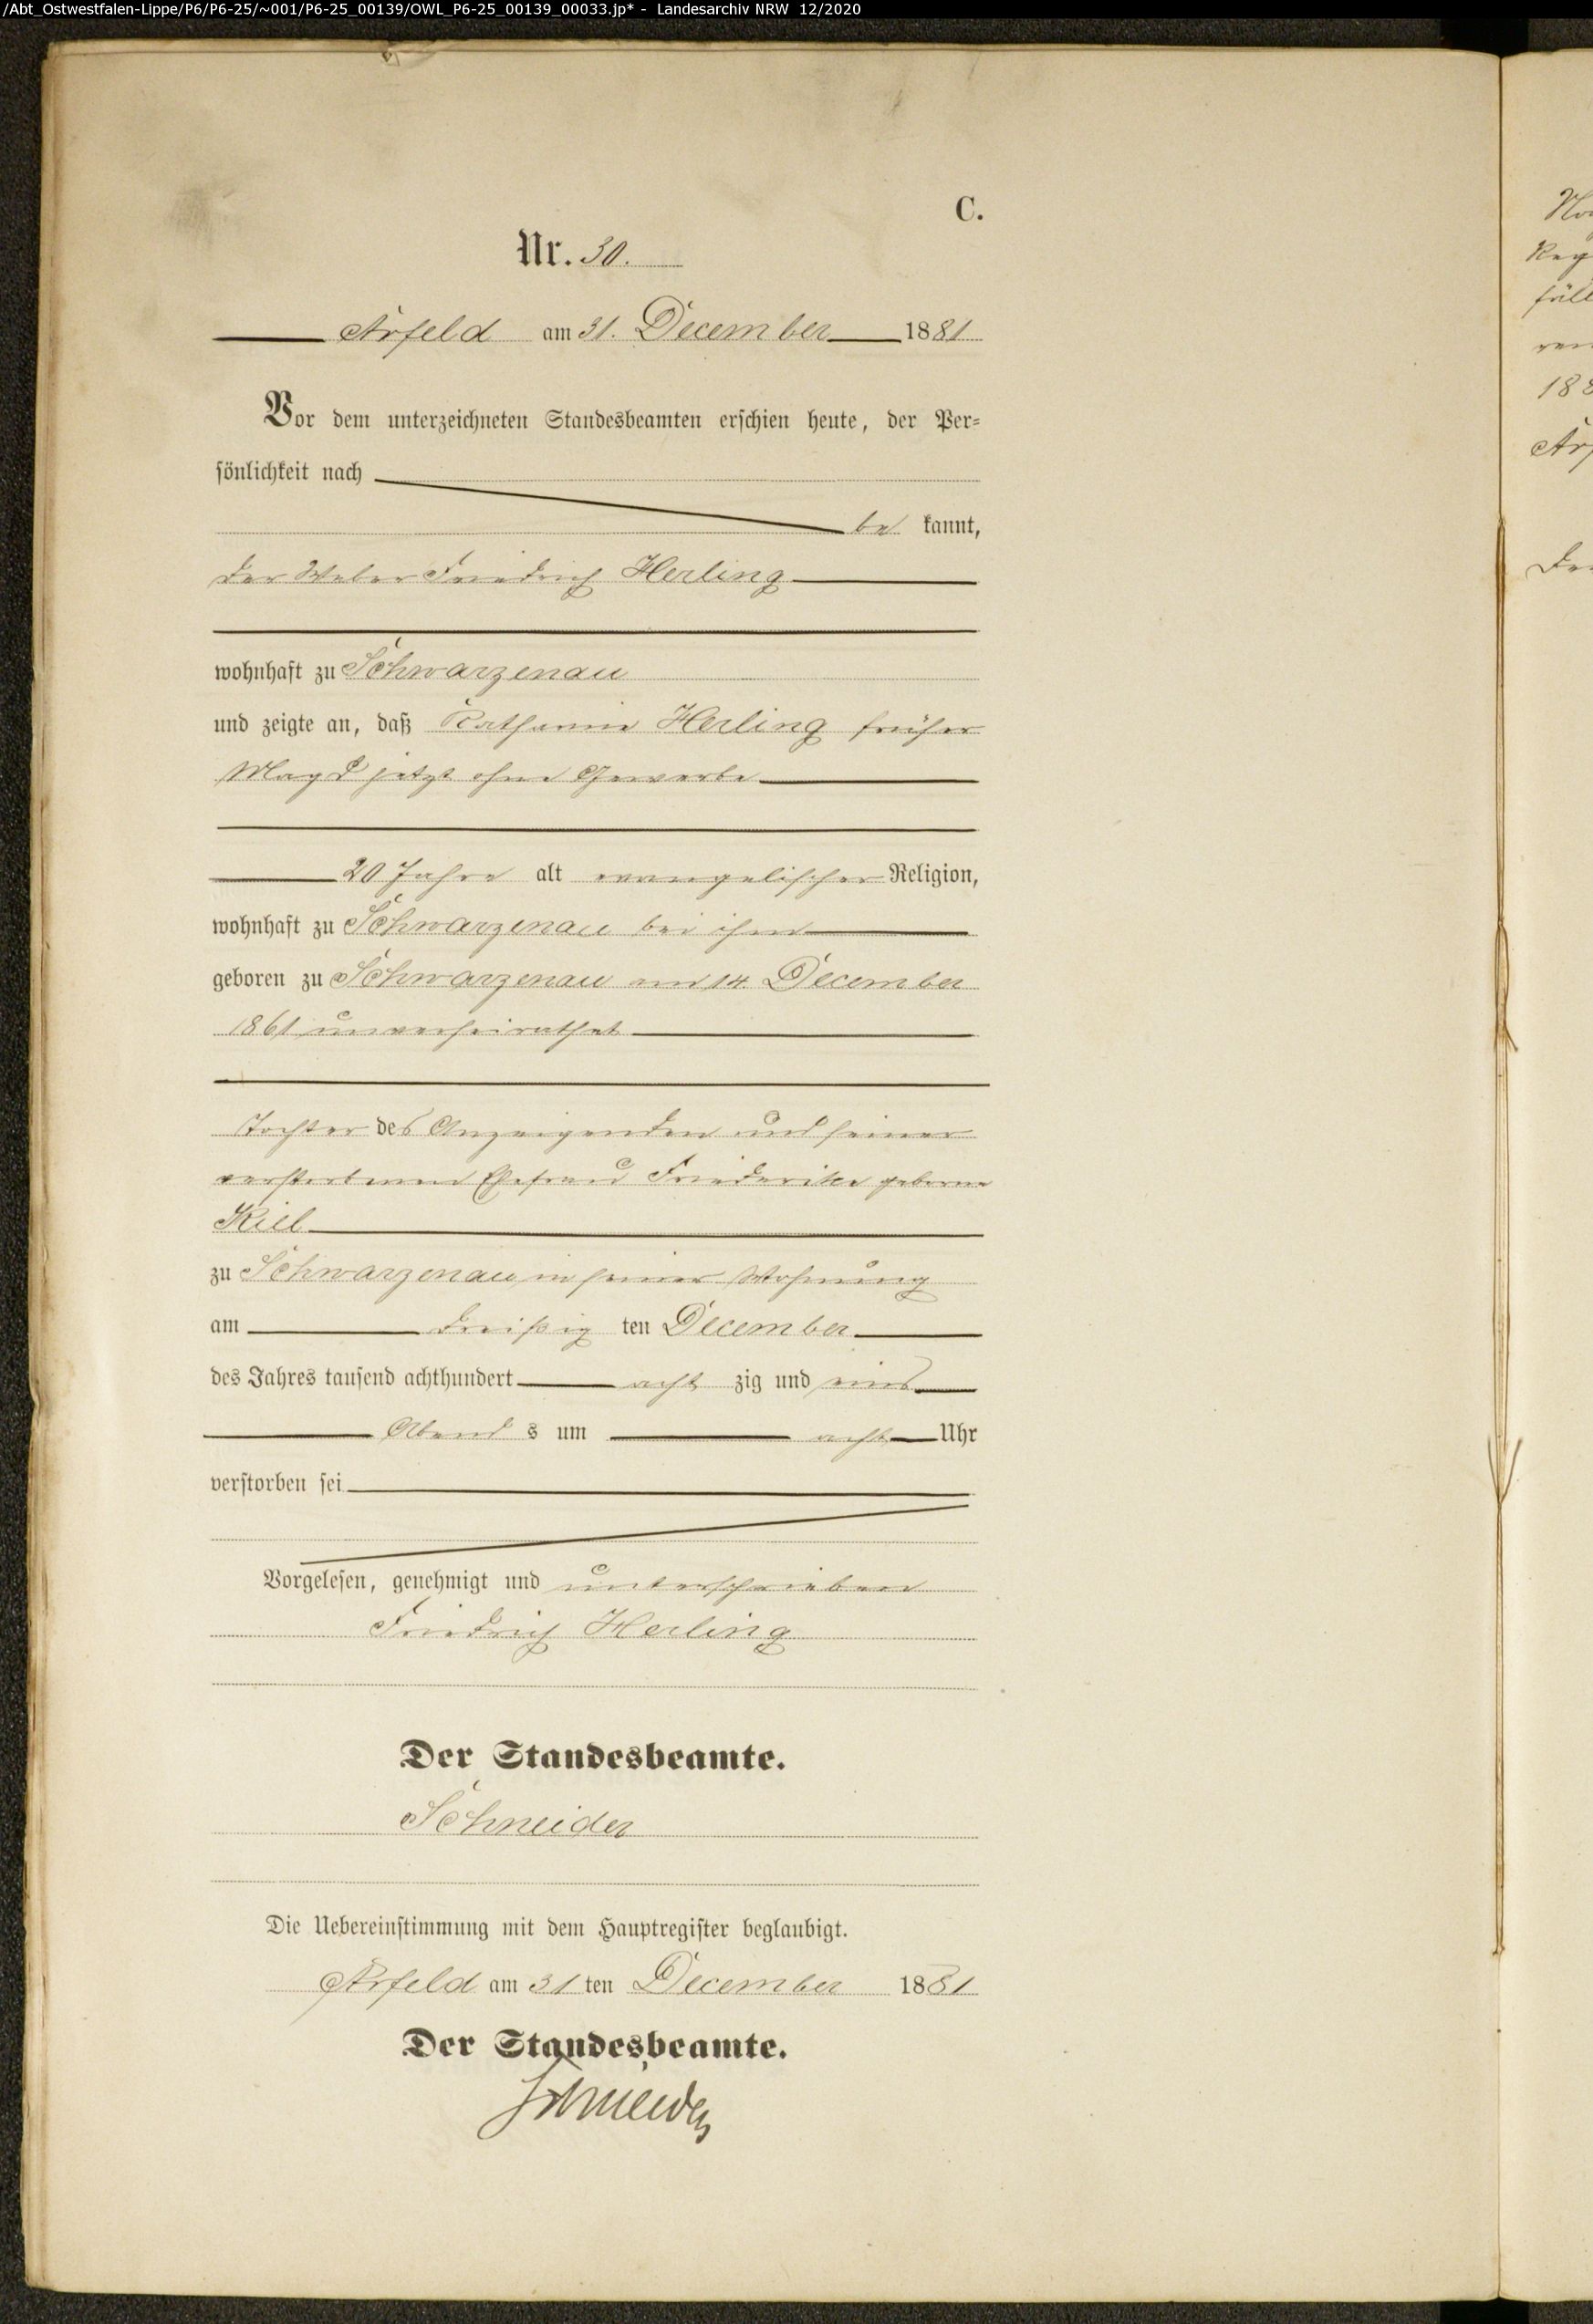 /Abt_Ostwestfalen-Lippe/P6/P6-25/~001/P6-25_00139/OWL_P6-25_00139_00033.jp* - Landesarchiv NRW 12/2020
C.
Nr. 30.
Arfeld am 31. December 1881
Vor dem unterzeichneten Standesbeamten erschien heute, der Per-
sönlichkeit nach
be kannt,
der Weber Friedrich Herling
wohnhaft zu Schwarzenau
und zeigte an, daß Katharine Herling früher
Magd jetzt ohne Gewerbe
20 Jahre alt evangelischer Religion,
wohnhaft zu Schwarzenau bei ihm
geboren zu Schwarzenau am 14. December
1861 unverheirathet
Tochter des Anzeigenden und seiner
verstorbenen Ehefrau Friederike geborne
Kiel
zu Schwarzenau in seiner Wohnung
am dreißig ten December
des Jahres tausend achthundert acht zig und eins
Abend s um acht Uhr
verstorben sei
Vorgelesen, genehmigt und unterschrieben
Friedrich Herling
Der Standesbeamte.
Schneider
Die Uebereinstimmung mit dem Hauptregister beglaubigt.
Arfeld am 31 ten December 1881
Der Standesbeamte.
Schneider